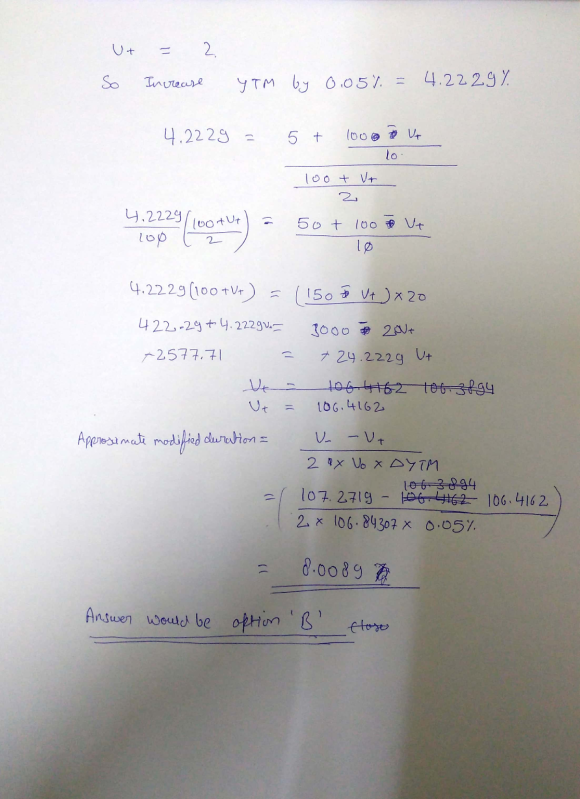 V+ = 2
So Increase YTM by 0.05% = 4.2229%
4.2229 = 5 + 100 - V+
10
100 + V+
2
4.2229 (100+V+) = 50 + 100 - V+
100 2 10
4.2229(100+V+) = (150 - V+) × 20
422.29 + 4.2229V+ = 3000 - 20V+
-2577.71 = -24.2229 V+
V+ = 106.4162 106.3894
V+ = 106.4162
Approximate modified duration = V- - V+
2 × V0 × ΔYTM
106.3894
= (107.2719 - 106.4162 106.4162)
2 × 106.84307 × 0.05%
= 8.0089
Answer would be option 'B' close